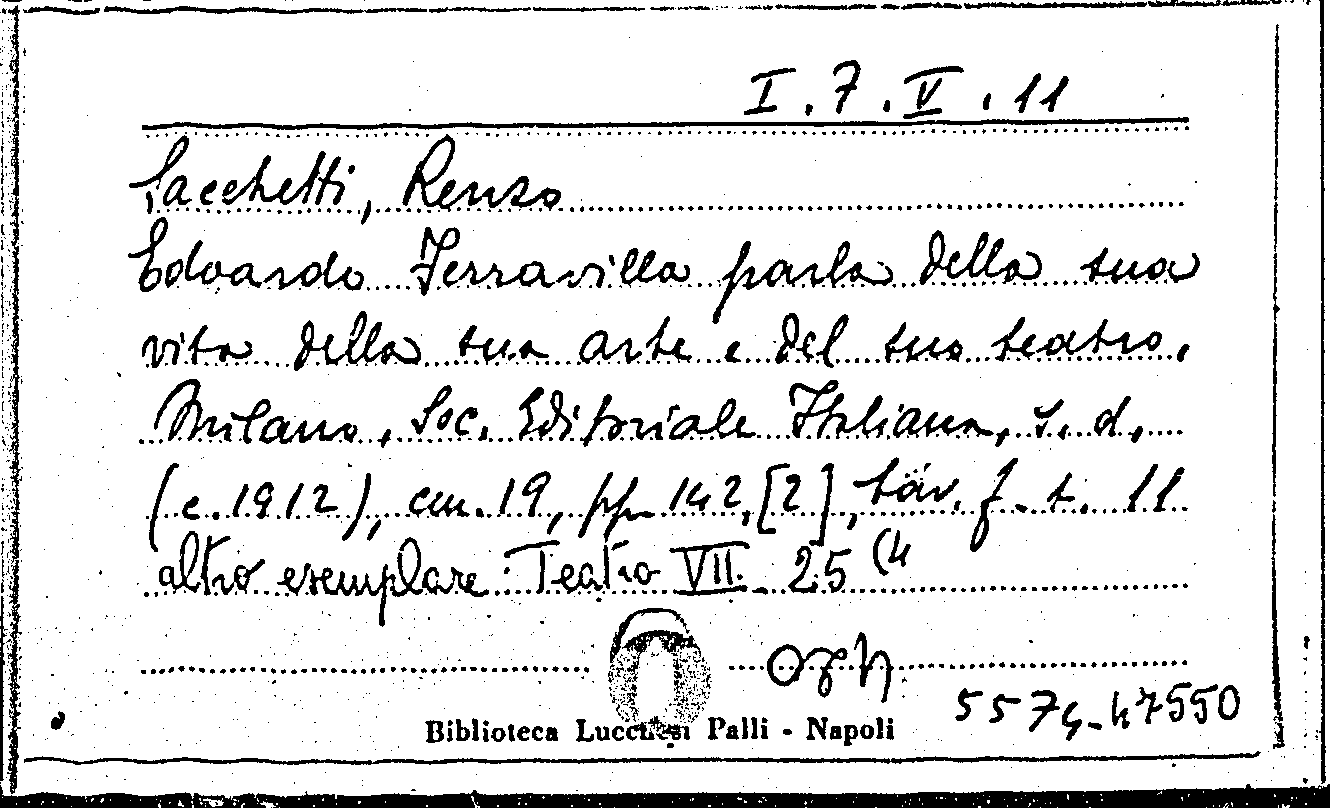 I.7.V.11
Sacchetti, Renzo
Edoardo Ferravilla parla della sua
vita della sua arte e del suo teatro,
Milano, Soc. Editoriale Italiana, s.d.
(c.1912), cm.19, pp. 142,[2], tav. f.t. 11
altro esemplare Teatro VII. 25 (4
Biblioteca Lucchesi Palli - Napoli